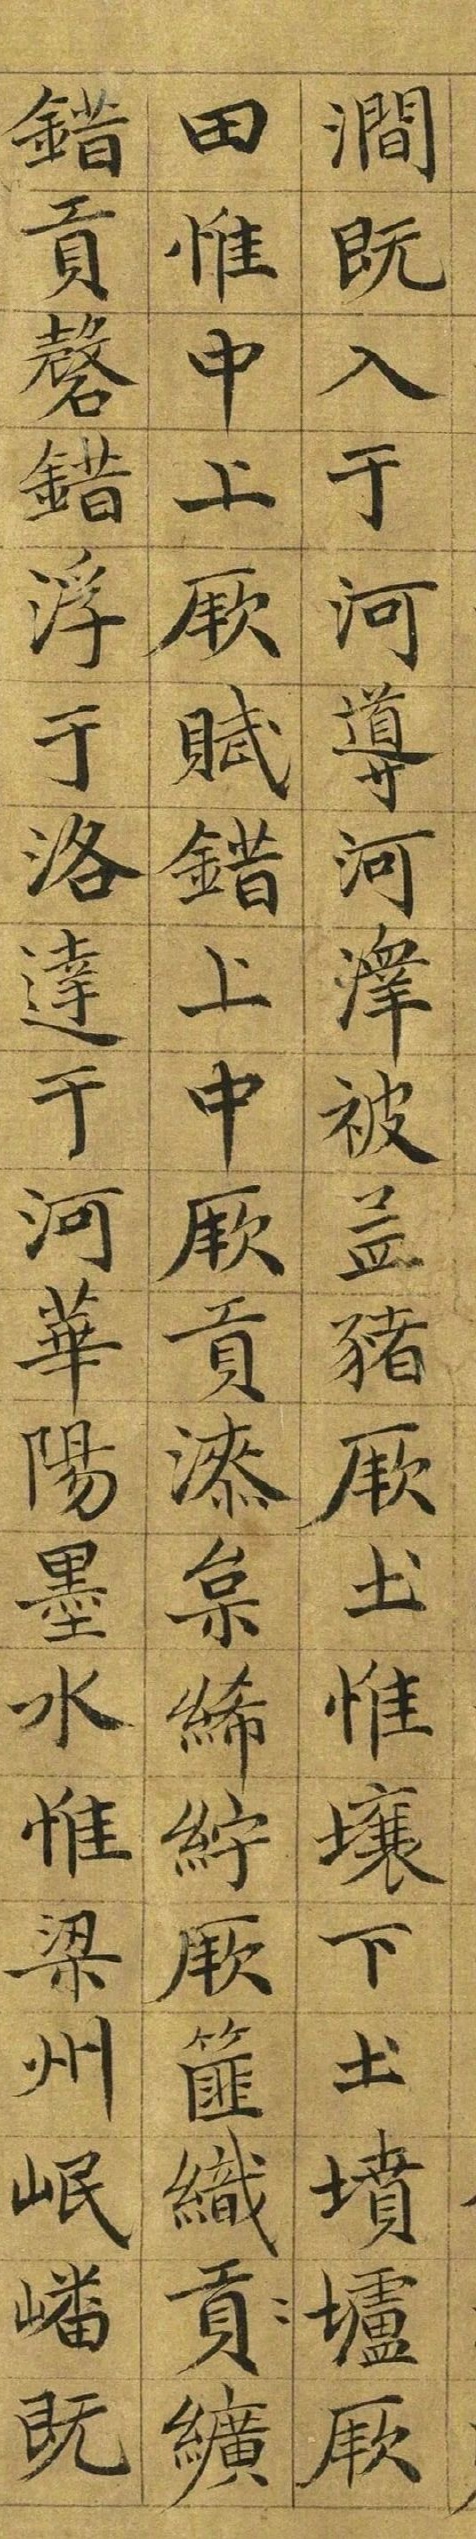 澗既入于河導河澤被孟豬厥土惟壤下土墳壚厥
田惟中上厥賦錯上中厥貢漆枲絺紵厥篚織貢纊
錯貢磬錯浮于洛達于河華陽墨水惟梁州岷嶓既